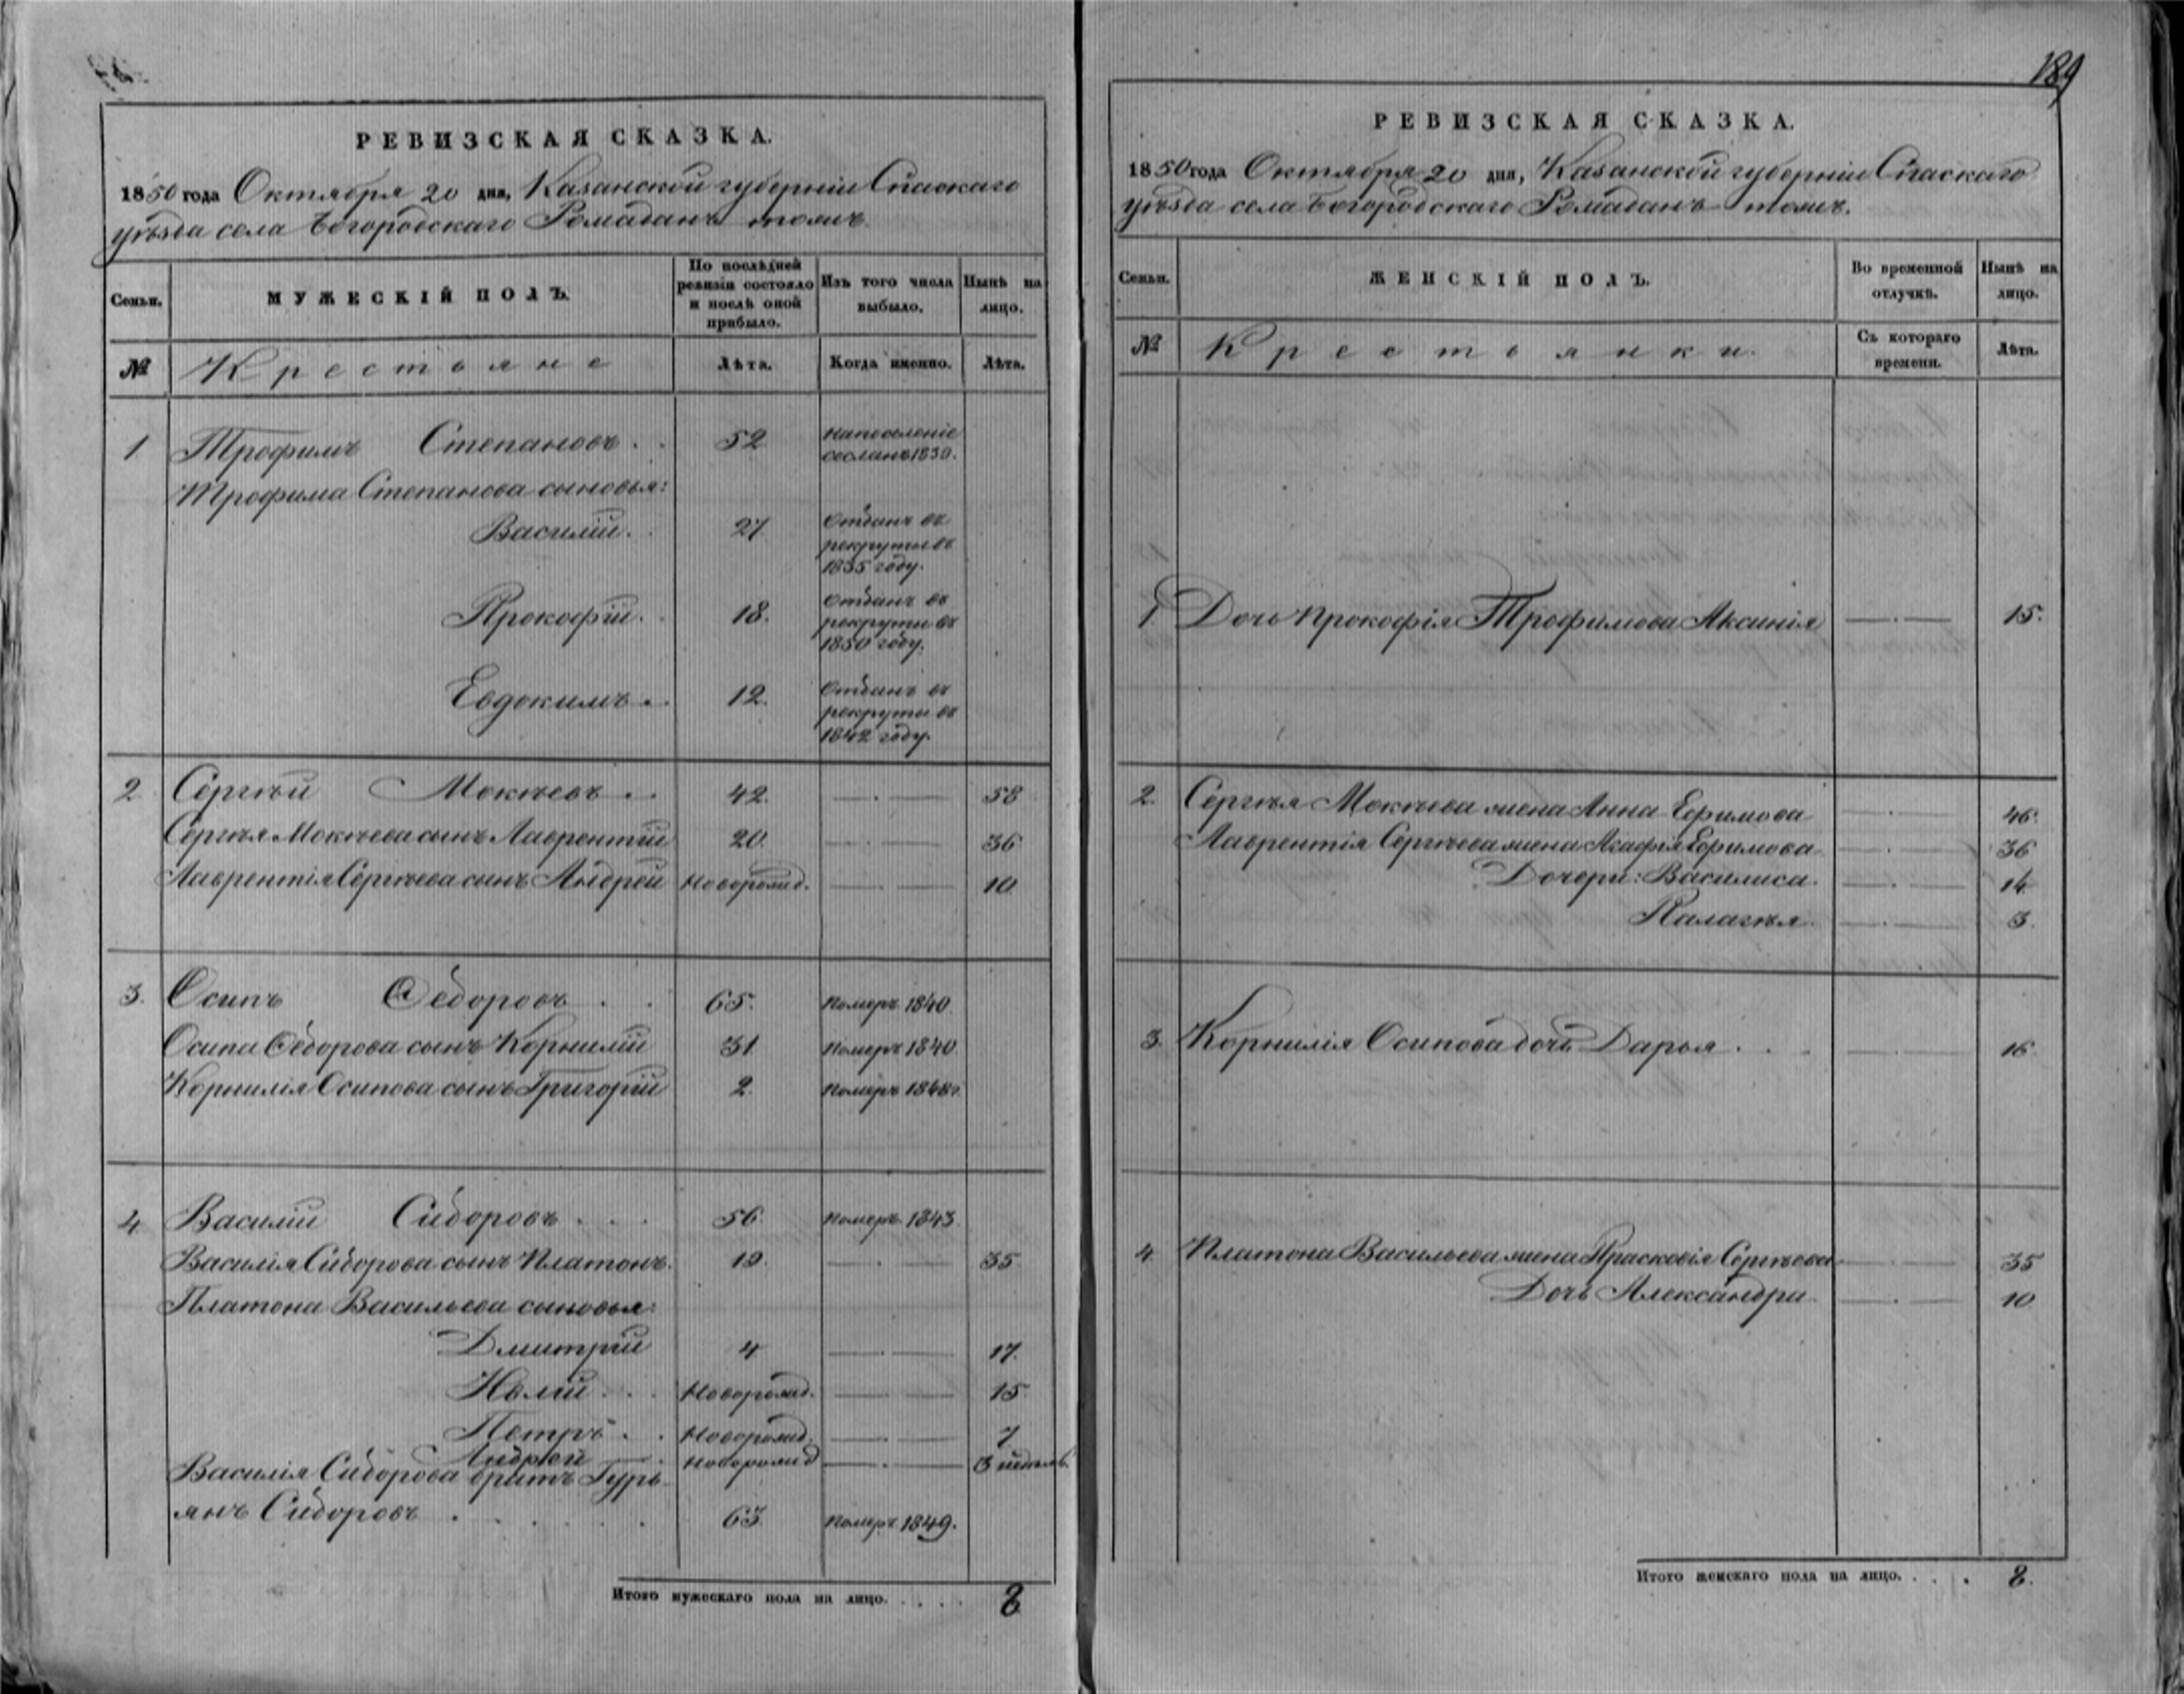 РЕВИЗСКАЯ СКАЗКА.
1850 года Октября 20 дня, Казанской губерніи Спаскаго
уѣзда села Богородскаго Ромаданъ тожъ.
Семьи.
МУЖЕСКІЙ ПОЛЪ.
По послѣдней ревизіи состояло и послѣ оной прибыло.
Изъ того числа выбыло.
Нынѣ на лицо.
№ Крестьяне Лѣта. Когда именно. Лѣта.
1 Трофимъ Степановъ . . 52 на поселеніе сосланъ 1839.
Трофима Степанова сыновья:
Василій. . 27 Отданъ въ рекруты въ 1835 году.
Прокофій. . 18. Отданъ въ рекруты въ 1850 году.
Евдокимъ. . 12. Отданъ въ рекруты въ 1842 году.
2 Сергѣй Мокѣевъ . . 42. 58
Сергѣя Мокѣева сынъ Лаврентій 20. 36
Лаврентія Сергѣева сынъ Андрей Новорожд. 10
3. Осипъ Ѳедоровъ . . 65. померъ 1840.
Осипа Ѳедорова сынъ Корнилій 31 померъ 1840.
Корнилія Осипова сынъ Григорій 2. померъ
4 Василій Сидоровъ . . . 56. померъ 1843.
Василія Сидорова сынъ Платонъ. 19. 35
Платона Васильева сыновья:
Дмитрій 4 17.
Новорожд. 15.
Петръ . . Новорожд. 7
Андрей . Новорожд 3 недѣль
Василія Сидорова братъ Гурь-
янъ Сидоровъ . . . . . 63. померъ 1849.
Итого мужескаго пола на лицо. . . . . 8
189
РЕВИЗСКАЯ СКАЗКА.
1850 года Октября 20 дня, Казанской губерніи Спаскаго
уѣзда села Богородскаго Ромаданъ тожъ.
Семьи.
ЖЕНСКІЙ ПОЛЪ.
Во временной отлучкѣ.
Нынѣ на лицо.
№ Крестьянки. Съ котораго времени. Лѣта.
1 Дочь Прокофія Трофимова Аксинія 15.
2. Сергѣя Мокѣева жена Анна Ефимова 46.
Лаврентія Сергѣева жена Агафія Ефимова 36
Дочери: Василиса. 14.
Палагѣя. 3.
3. Корнилія Осипова дочь Дарья . . . 16
4. Платона Васильева жена Прасковія Сергѣева 35
Дочь Александра 10
Итого женскаго пола на лицо. . . . 8.